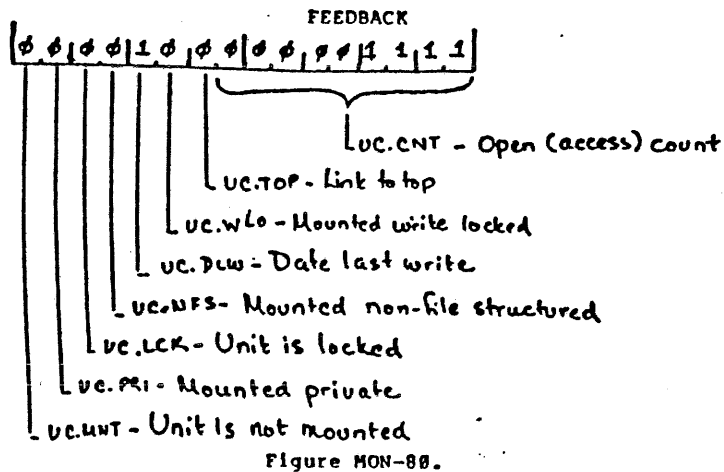 FEEDBACK
0 0 0 0 1 0 0 0 0 0 0 0 1 1 1 1
UC.CNT - Open (access) count
UC.TOP - Link to top
UC.WLO - Mounted write locked
UC.DLW - Date last write
UC.NFS - Mounted non-file structured
UC.LCK - Unit is locked
UC.PRI - Mounted private
UC.MNT - Unit Is not mounted
Figure MON-80.